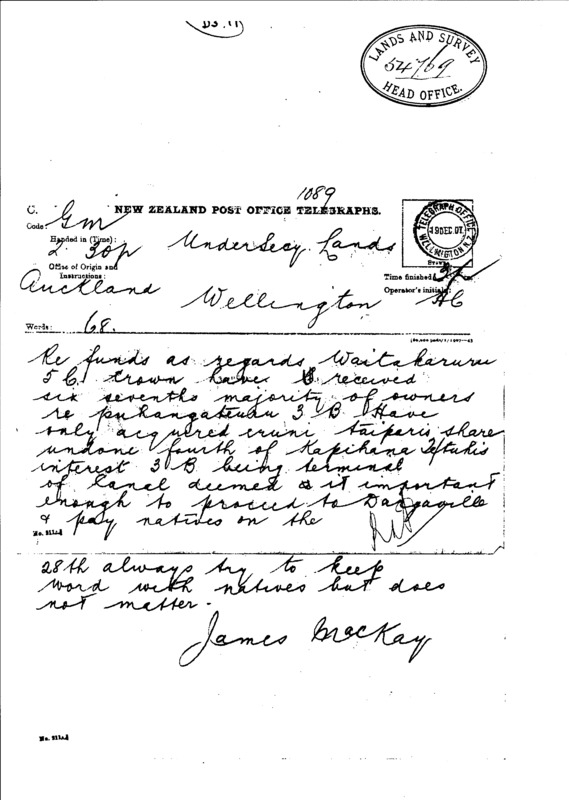 D3.11
LANDS AND SURVEY
54769
HEAD OFFICE.
1089
G. NEW ZEALAND POST OFFICE TELEGRAPHS.
Code: Gm
Handed in (Time): 2 30p
UnderSecy Lands
TELEGRAPH OFFICE
19 DEC. 07
WELLINGTON N.Z.
Office of Origin and
Instructions:
Auckland
Wellington
Time finished:
Operator's initials: HC
Words: 68.
Re funds as regards Waitakaruru
5 C. Crown have received
six sevenths majority of owners
re pukangatuau 3 B Have
only acquired eruni taiparis share
undone fourth of Kapihana
interest 3 B being terminal
of Canal deemed it important
enough to proceed to Dargaville
& pay natives on the
No. 311Ad
28th always try to keep
word with natives but does
not matter.
James Mackay
No. 311Ad